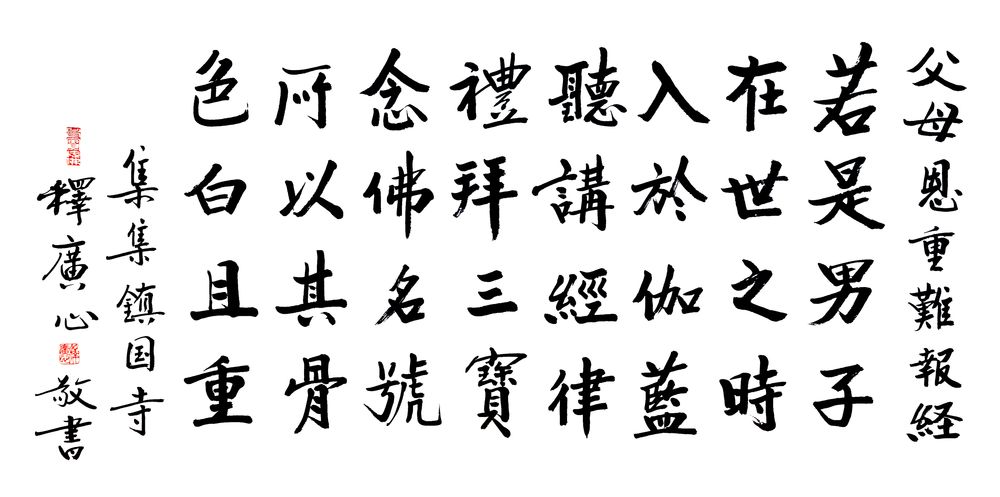 父母恩重難報経
若是男子
在世之時
入於伽藍
聽講經律
禮拜三寶
念佛名號
所以其骨
色白且重
集集鎮国寺
釋廣心敬書